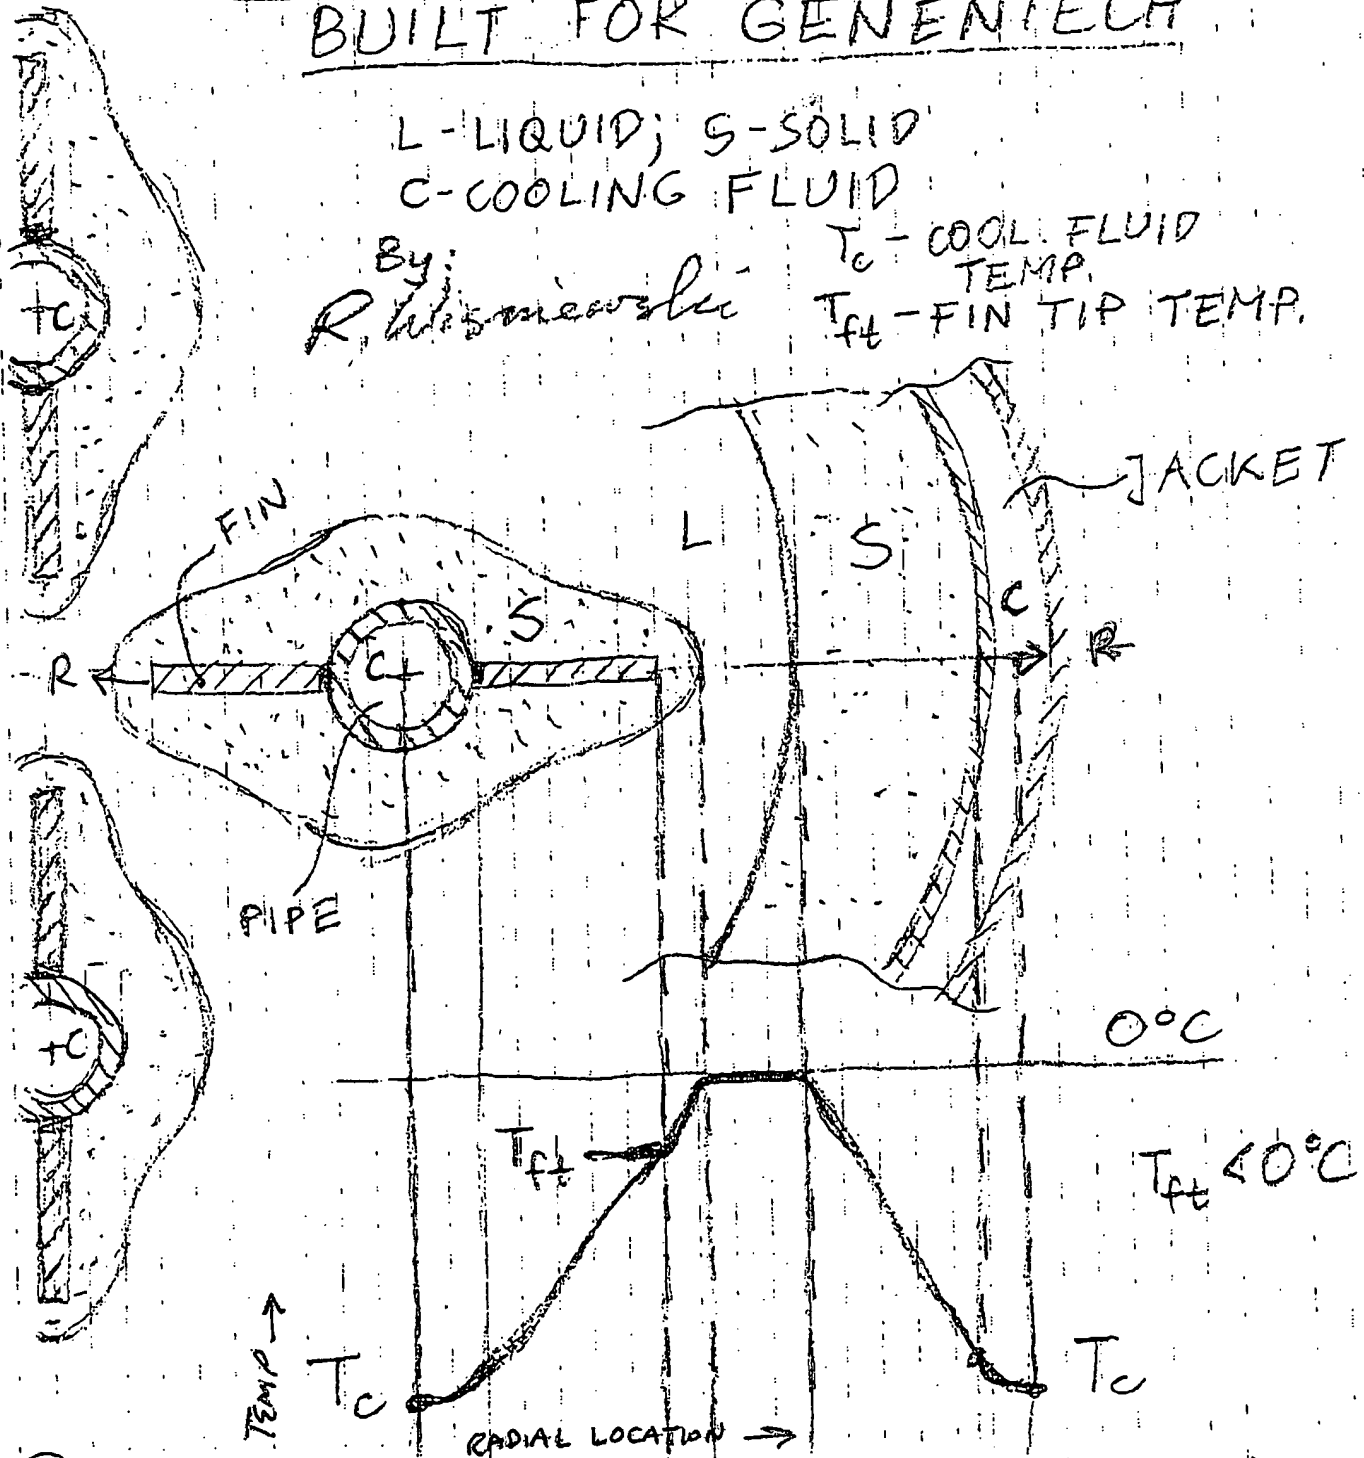 BUILT FOR GENENTECH
L-LIQUID; S-SOLID
C-COOLING FLUID
By:
R. Wisniewski
Tc - COOL. FLUID
TEMP.
Tft - FIN TIP TEMP.
+C
JACKET
FIN
L
S
S
C
C+
R
R
PIPE
+C
0°C
Tft
Tft < 0°C
Tc
Tc
TEMP →
RADIAL LOCATION →